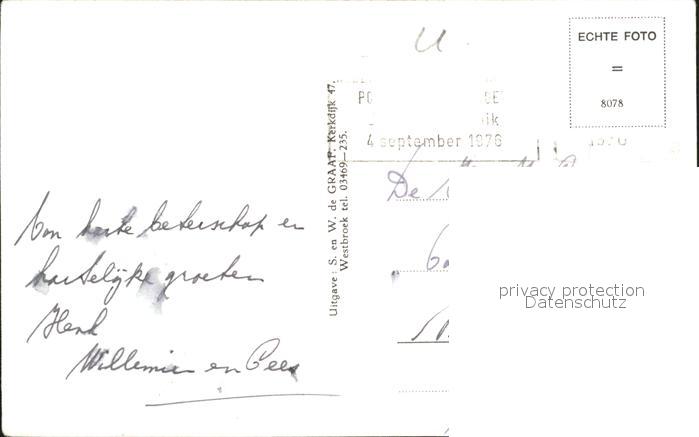 U.
ECHTE FOTO
=
8078
4 september 1976
Uitgave: S. en W. de GRAAF, Kerkdijk 47,
Westbroek tel. 03469—235.
Van harte beterschap en
hartelijke groeten
Henk
Willemien en Cees
De
privacy protection
Datenschutz